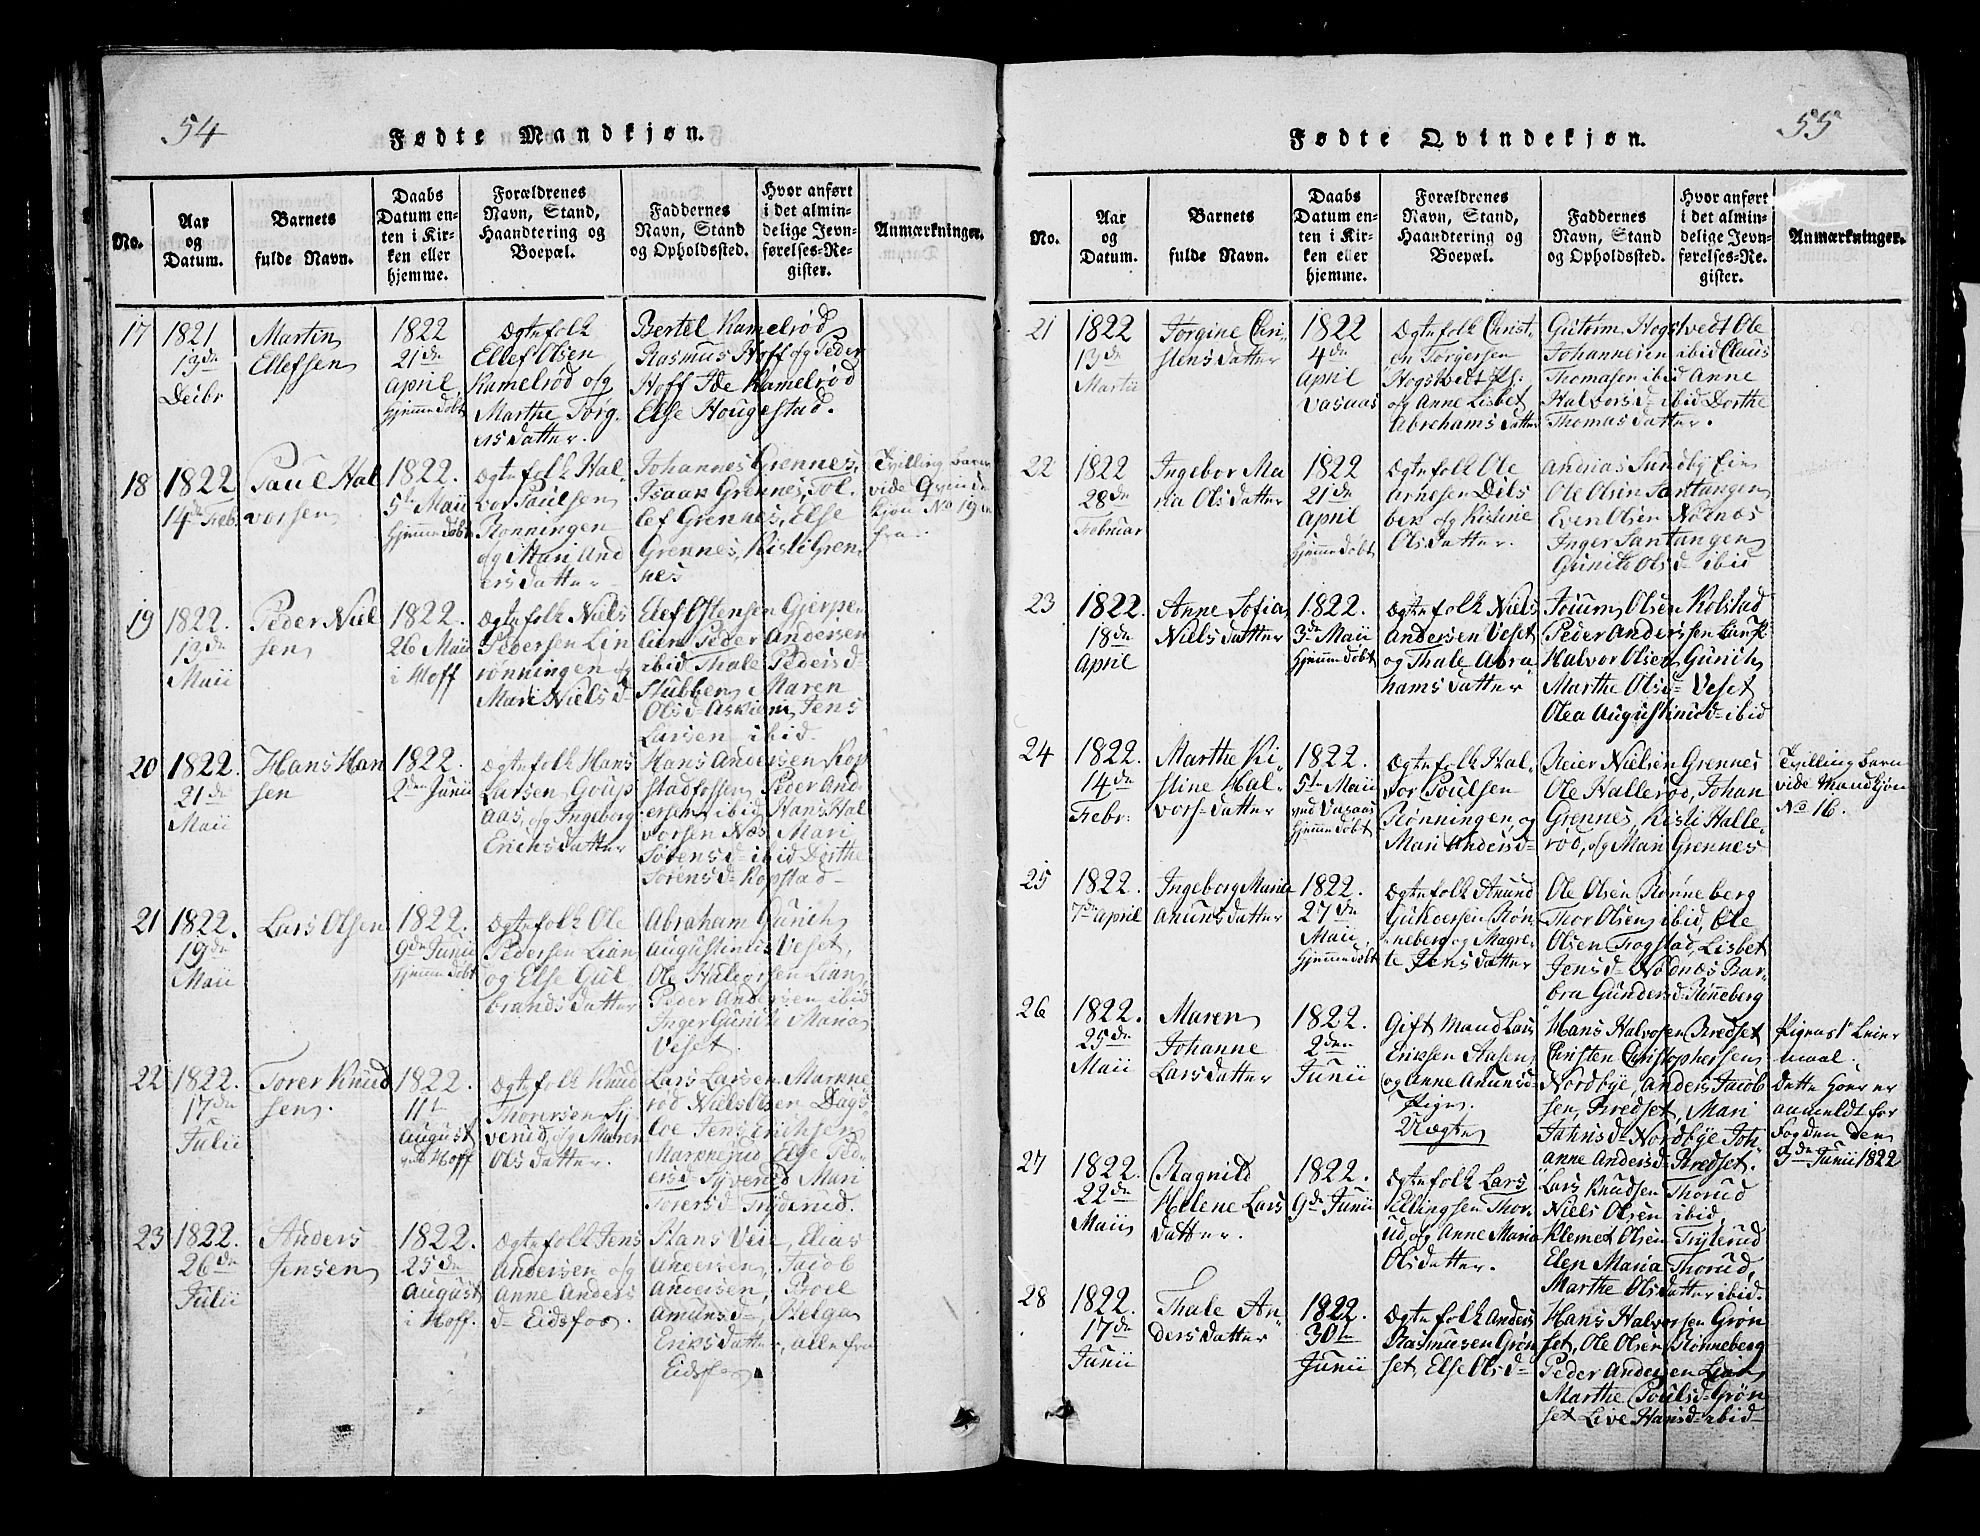 54
Fødte Mandkjøn.
No.
Aar
og
Datum.
Barnets
fulde Navn.
Daabs
Datum en-
ten i Kir-
ken eller
hjemme.
Forældrenes
Navn, Stand,
Haandtering og
Boepæl.
Faddernes
Navn, Stand
og Opholdssted.
Hvor anført
i det almin-
delige Jevn-
førelses-Re-
gister.
Anmærkninger.
17
1821
13de
Deibr
Martin
Ellefsen
1822
21de
April
Hjemme Døbt
Ægtefolk
Ellef Olsen
Kamelrød og
Marthe Torg-
ersdatter.
Bertel Kamelrød
Rasmus Hoff og Peder
Hoff Ide Kamelrød
Else Hougestad.
18
1822
14de Febr
Paul Hal
vorsen
1822.
5te Maii
Hjemme Døbt
Ægtefolk Hal-
vor Paulsen
Rønningen
og Mari And
ersdatter
Johannes Grennes,
Isaak Grennes, Tol-
lef Grennes, Else
Grennes, Kisti Gren-
nes
Tvilling barn
vide Qvinde
kjøn No 19
fra
19
1822.
13de
Maii
Peder Niel
sen
1822.
26 Maii
i Hoff
Ægtefolk Niels
Pedersen Lin
rønningen og
Mari Nielsd
Elef Østensen Gjerpe-
lien Peder Andersen
ibid Thale Pedersd
Stubben Maren
Olsd Askium Jens
Larsen ibid
20
1822.
21de
Maii
Hans Han
sen
1822.
2den Junii
Ægtefolk Hans
Larsen Goup
aas, og Ingeborg
Ericksdatter
Hans Andersen Kop
stadfossen Peder And
ersen ibid Hans Hal
vorsen Næs Mari
Sørensd ibid Dorthe
Sørensd Kopstad
21
1822.
19de
Maii
Lars Olsen
1822.
9de Junii
Hjemme Døbt
Ægtefolk Ole
Pedersen Lian
og Else Gul
brandsdatter
Abraham Gurich
Augustinus Veset,
Ole Halvorsen Lian
Peder Andersen ibid
Inger Gurich Maria
Veset.
22
1822.
17de
Julii
Torer Knud
sen.
1822.
11te
August
ved Hoff
Ægtefolk Knud
Thorersen Sy
verud, og Maren
Olsdatter.
Lars Larsen Markne
rød Niels Olsen Dags
loe Jens Ericksen
Marknerud Else Ped-
ersd Syverud Mari
Torersd Tryterud.
23
1822.
26de
Julii
Anders
Jensen
1822.
25de
August
i Hoff.
Ægtefolk Jens
Andersen og
Anne Anders
d Eidsfos
Hans Veie, Elias
Andersen, Jacob
Andersen, Boel
Amunsd, Helga
Ericksdatter, alle fra
Eidsfos
55
Fødte Qvindekjøn.
No.
Aar
og
Datum.
Barnets
fulde Navn.
Daabs
Datum en-
ten i Kir-
ken eller
hjemme.
Forældrenes
Navn, Stand,
Haandtering og
Boepæl.
Faddernes
Navn, Stand
og Opholdssted.
Hvor anført
i det almin-
delige Jevn-
førelses-Re-
gister.
Anmærkninger.
21
1822
13de
Martii
Jørgine Chri-
stensdatter
1822
4de
April
Vasaas
Ægtefolk Christ-
en Torgersen
Hogstvedt
og Anne Lisbet
Abrahamsdatter
Gutorm Hogstvedt Ole
Johannesen ibid Claus
Thomasen ibid Anne
Halvorsd ibid Dorthe
Thomasdatter.
22
1822
28de
Februar
Ingebor Ma
ria Olsdatter
1822
21de
April
Hjemme Døbt
Ægtefolk Ole
Arnesen Dils
bek og Kistine
Olsdatter.
Andreas Sundby Eie
Ole Olsen Santangen
Even Olsen Nøknæs
Inger Santangen
Gunild Olsd ibid
23
1822.
18de
April
Anne Sofia
Nielsdatter
1822.
3de Maii
Hjemme Døbt
Ægtefolk Niels
Andersen Veset
og Thale Abra
hamsdatter
Joium Olsen Kolstad
Peder Anderssen
Halvor Olsen Gurich
Marthe Olsd Veset
Olea Augustinusd ibid
24
1822.
14de
Febr:
Marthe Ki-
stine Hal-
vorsdatter
1822.
5te Maii
ved Vasaas
Hjemme Døbt
Ægtefolk Hal-
vor Poulsen
Rønningen og
Mari Andersd
Reier Nielsen Grennes
Ole Hallerød, Johan
Grennes, Kisti Halle-
rød, og Mari Grennes
Tvilling Barn
vide Mandkjøn
No 16.
25
1822.
7de April
Ingeborg Maria
Anunsdatter
1822.
27de
Maii,
Hjemme Døbt
Ægtefolk Anund
Gulversen Røn-
neberg og Magre-
te Jensdatter
Ole Olsen Rønneberg
Thor Olsen ibid, Ole
Olsen Fogstad, Lisbet
Jensd Nødnæs Bar-
bra Gundersd Rønneberg
26
1822.
25de
Maii
Maren
Johanne
Larsdatter
1822.
2den
Junii
Gift Mand Lars
Ericksen Aasen
og Anne Amunsd
Pige.
Uægte
Hans Halvorsen Bredset
Christen Christophersen
Nordbye, Anders Jacob
sen, Bredset, Mari
Jahnsd Nordbye Joh
anne Andersd Bredset.
Pigens 1te Leier
maal.
Dette Hoer er
anmeldt for
Fogden den
3de Junii 1822
27
1822.
22de
Maii
Ragnild
Helene Lars
datter.
1822.
9de Junii
Ægtefolk Lars
Ellingsen Thor-
ud, og Anne Maria
Olsdatter.
Lars Knudsen Thorud
Niels Olsen ibid,
Klemet Olsen Tryterud
Elen Maria Thorud,
Marthe Olsdatter ibid.
28
1822.
17de
Junii
Thale An-
dersdatter
1822.
30te
Junii
Ægtefolk Anders
Rasmusen Grøn
set, Else Olsd
Hans Halvorsen Grøn
set, Ole Olsen Rønneberg
Peder Andersen Lian
Marthe Poulsd Grøn
set Live Hansd ibid